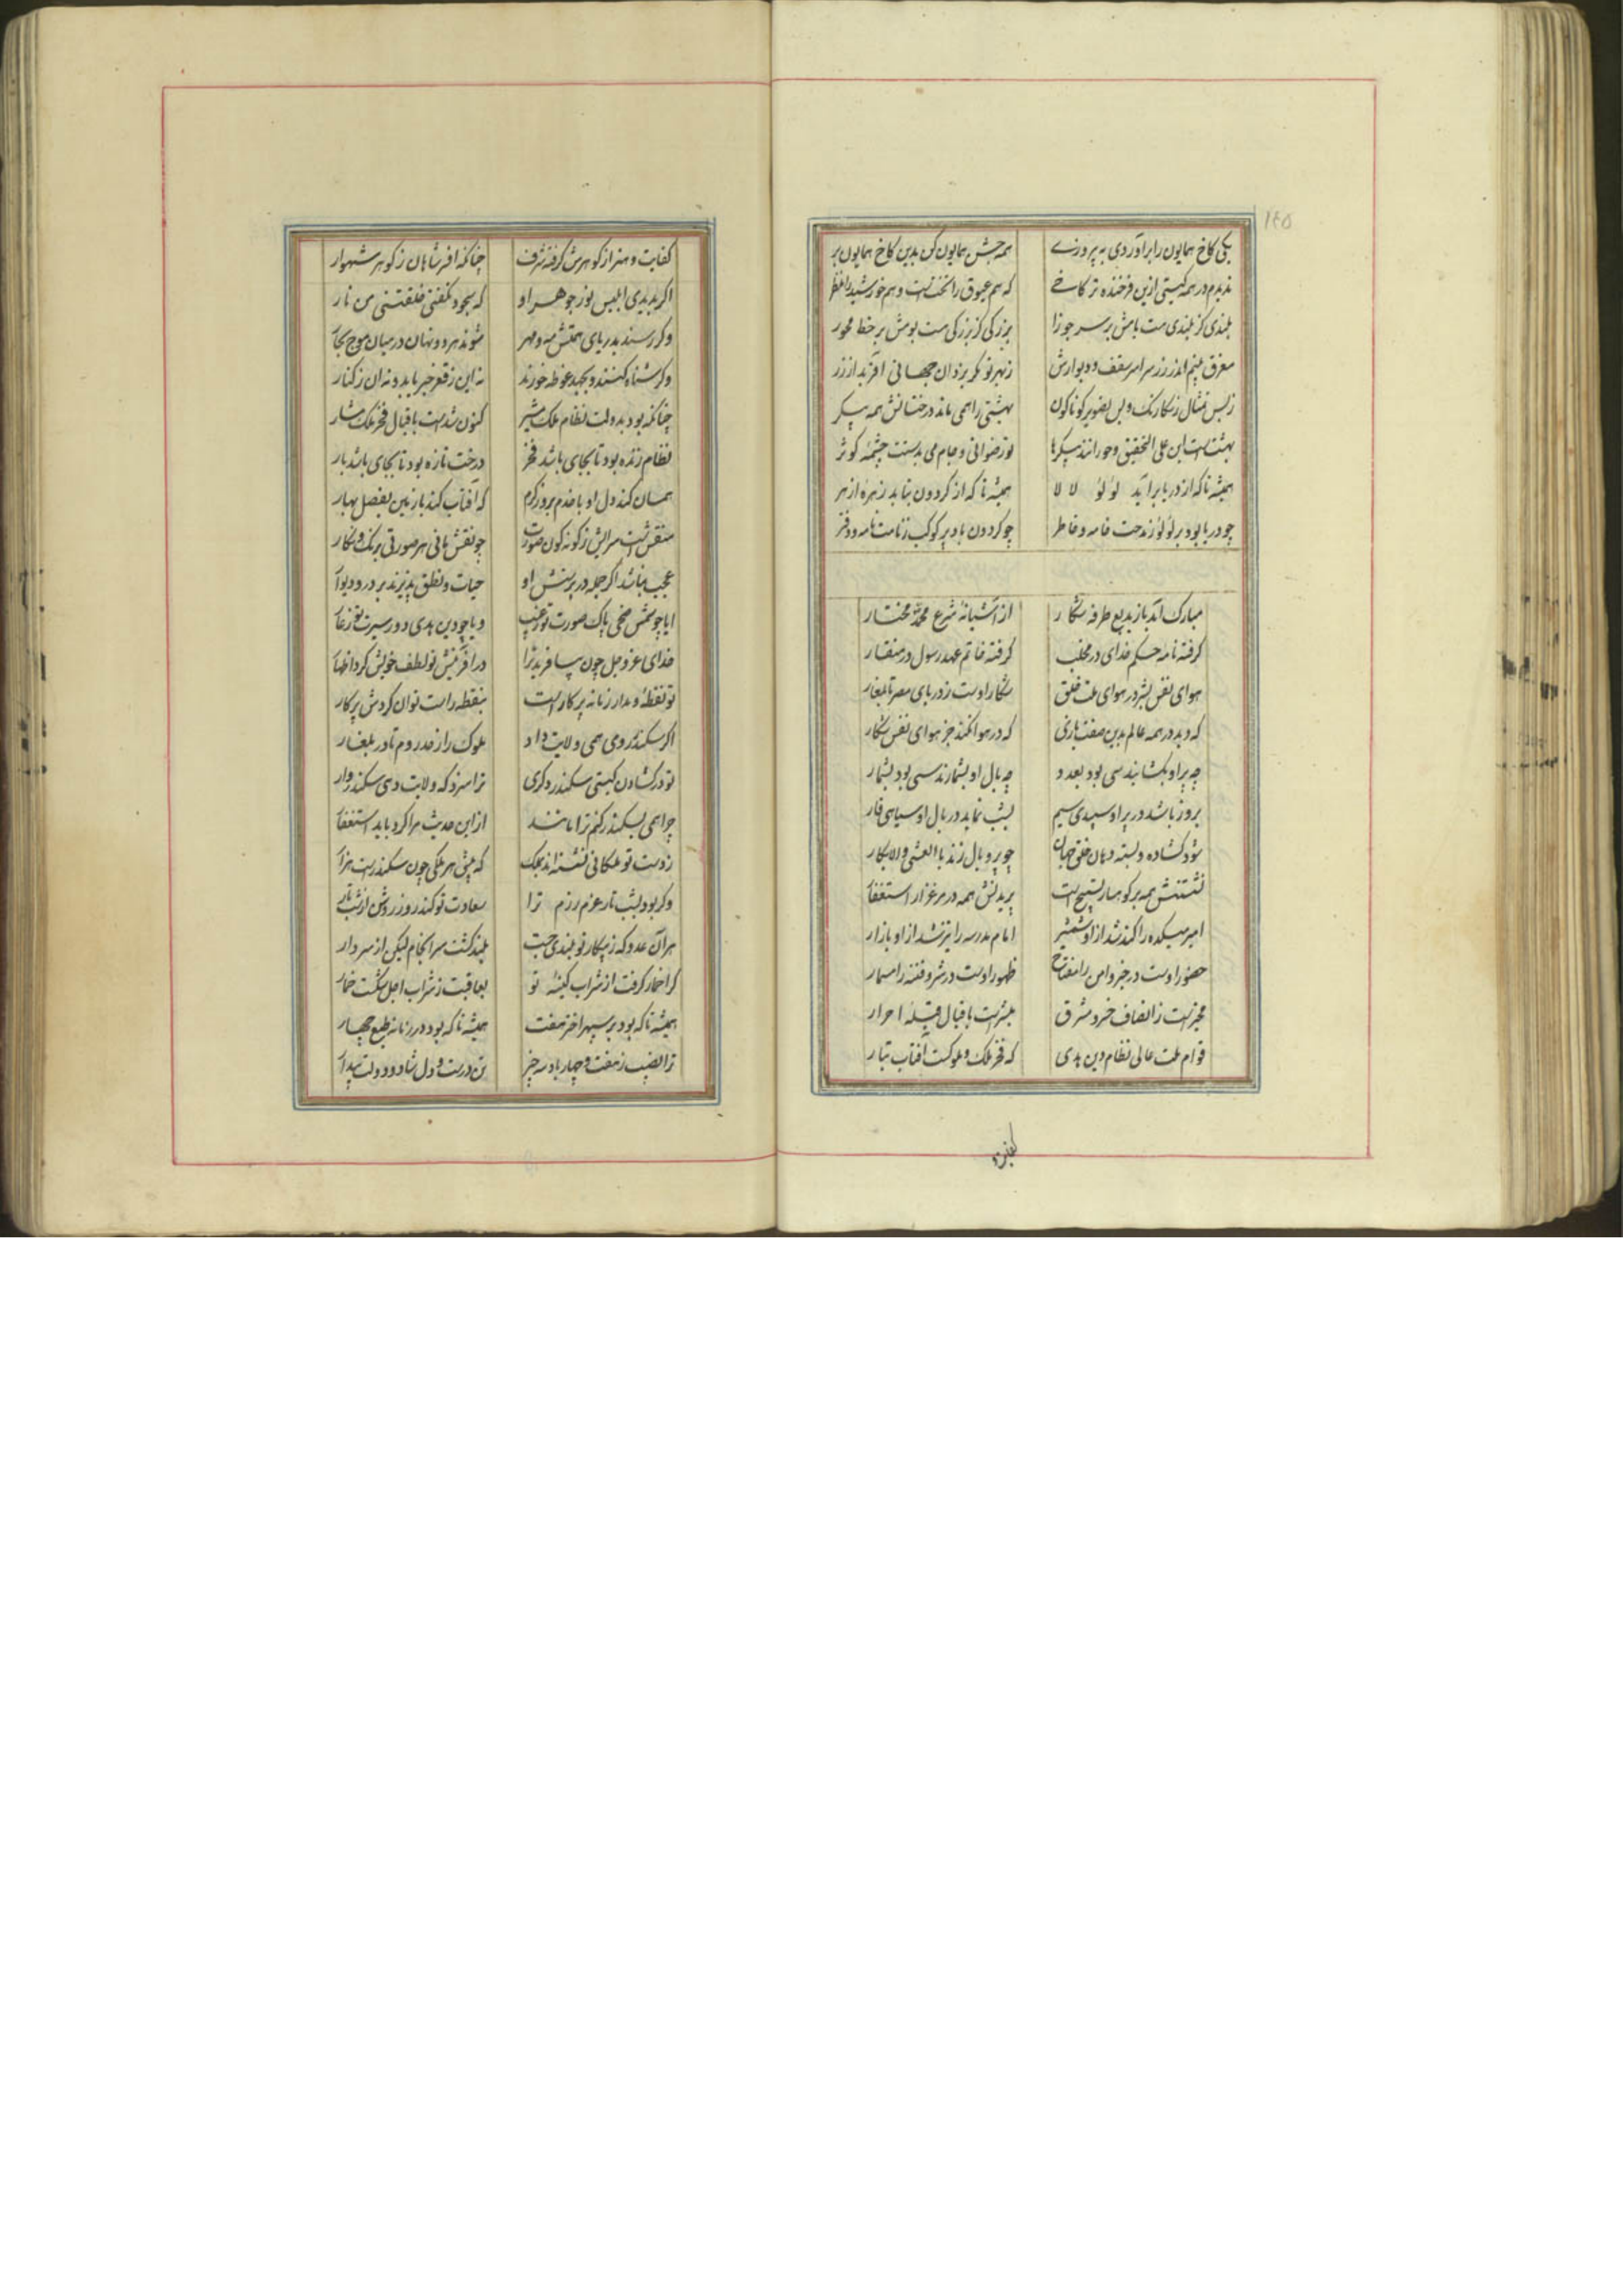 ۱۴۵
یکی کاخ همایون را برآوردی به پیروزے همه جشن همایون کن بدین کاخ همایون بر
ندیدم در همه کیتی ازین فرخنده تر کاخے که هم عیوق را تختست و هم خورشید را منظر
بلندی کز بلندی هست بامش بر سر جوزا بزرکی کز بزرکی هست بومش بر خط محور
مغرق بینم اندر زر سراسر سقف و دیوارش زبهر تو مکر یزدان جهانی آفرید از زر
زبس تمثال رنکارنک و بس تصویر کوناکون بهشتی را همی ماند درختانش همه پیکر
بهشت است این علی التحقیق و حورانند پیکرها تو رضوانی و جام می بدستت چشمه کوثر
همیشه تا که از دریا برآید لؤلؤ لا لا همیشه تا که از کردون بتابد زهره ازهر
چو دریا بود پر لؤلؤ ز مدحت خامه و خاطر چو کردون باد پر کوکب ز نامت نامه و دفتر
مبارک آمد باز بدیع طرفه شکار از آشیانه شرع محمد مختار
کرفته نامه حکم خدای در مخلب کرفته خاتم عهد رسول در منقار
هوای نفس بشر در هوای ملت خلق شکار اوست ز دریای مصر تا بلغار
که دید در همه عالم بدین صفت بازی که در هوا نکند جز هوای نفس شکار
چه پر او بکشایند سی بود بعدد چه بال او بشمارند سی بود بشمار
بروز باشد در پر او سپیدی سیم بشب نماید در بال او سیاهی قار
شود کشاده و بسته دهان خلق جهان چو پر و بال زند بالعشی والابکار
نشستنش همه بر کوهسار تسبیح است پریدنش همه در مرغزار استغفار
امیر میکده را کند شد از او شمشیر امام مدرسه را تیز شد از او بازار
حضور اوست در خیر و امن را مفتاح ظهور اوست در شر و فتنه را مسمار
مخبر است ز انصاف خسرو مشرق مبشر است باقبال قبله احرار
قوام ملت عالی نظام دین هدی که فخر ملک و ملوکست آفتاب تبار
کفایت و
کفایت و هنر از کوهرش کرفته شرف چنانکه افسر شاهان ز کوهر شهوار
اکر بدیدی ابلیس نور جوهر او که سجود نکفتی خلقتنی من نار
وکر رسند بدریای همتش مه و مهر شوند هر دو نهان در میان موج بحار
وکر شناه کنند و بجهد غوطه خورند نه این ز قعر خبر یابد و نه آن ز کنار
چنانکه بود بدولت نظام ملک مشیر کنون شدست باقبال فخر ملک مشار
نظام زنده بود تا بجای باشد فخر درخت تازه بود تا بجای باشد بار
همان کند دل او با خدم بروز کرم که آفتاب کند با زمین بفصل بهار
منقش است سرایش ز کونه کون صورت چو نقش مانی هر صورتی برنک و نکار
عجب نباشد اکر جمله در پرستش او حیات و نطق پذیرند بر در و دیوار
ایا چو شمس ضحی پاک صورت تو ز عیب و یا چو دین هدی دور سیرت تو ز عار
خدای عز و جل چون بیافرید ترا در آفرینش تو لطف خویش کرد اظهار
تو نقطه و مدار زمانه پرکار است بنقطه راست توان کردش پرکار
اکر سکندر رومی همی ولایت داد ملوک را ز در روم تا در بلغار
تو در کشادن کیتی سکندر دکری ترا سزد که ولایت دهی سکندروار
چرا همی بسکندر کنم ترا مانند از این حدیث مرا کرد باید استغفار
ز دست تو ملکانی نشسته اند بملک که پیش هر ملکی چون سکندرست هزار
وکر بود بشب تار عزم رزم ترا سعادت تو کند روز روشن از شب تار
هر آن عدو که ز پیکار تو بلندی جست بلند کشت سرانجام لیکن از سر دار
کرا خمار کرفت از شراب کینه تو بعاقبت ز شراب اجل شکست خمار
همیشه تا که بود بر سپهر اختر هفت همیشه تا که بود در زمانه طبع چهار
ترا نصیب ز هفت و چهار باد سه چیز تن درست و دل شاد و دولت بیدار